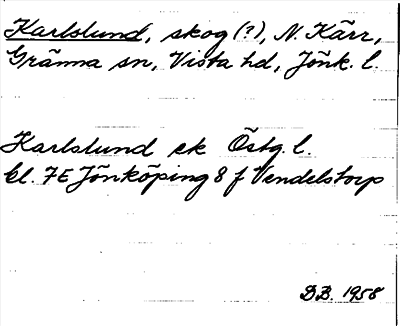 Karlslund, skog (?), N. Kärr,
Gränna sn, Vista hd, Jönk. l.
Karlslund ek Östg. l.
bl. 7E Jönköping 8 f Vendelstorp
D.B. 1958